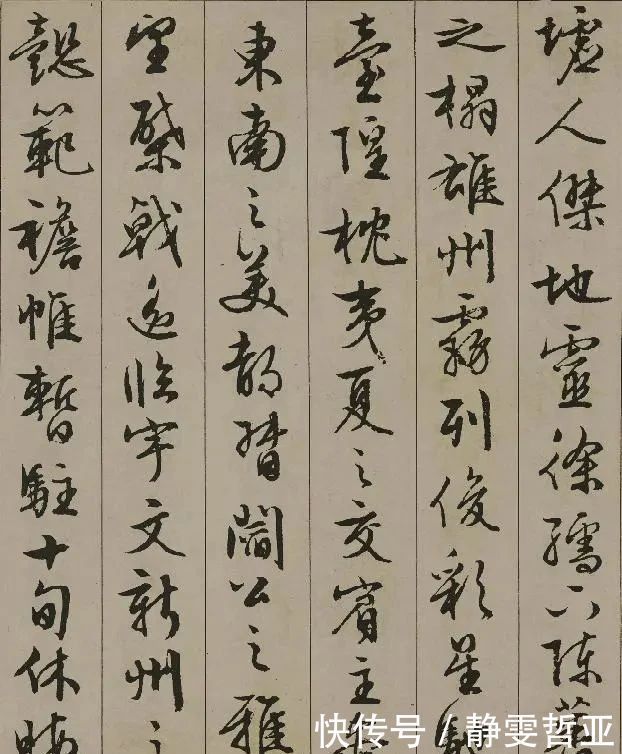 墟人傑地靈徐孺下陳蕃
之榻雄州霧列俊彩星馳
臺隍枕夷夏之交賓主
東南之美都督閻公之雅
望棨戟遙臨宇文新州之
懿範襜帷暫駐十旬休暇
快传号/静雯哲亚